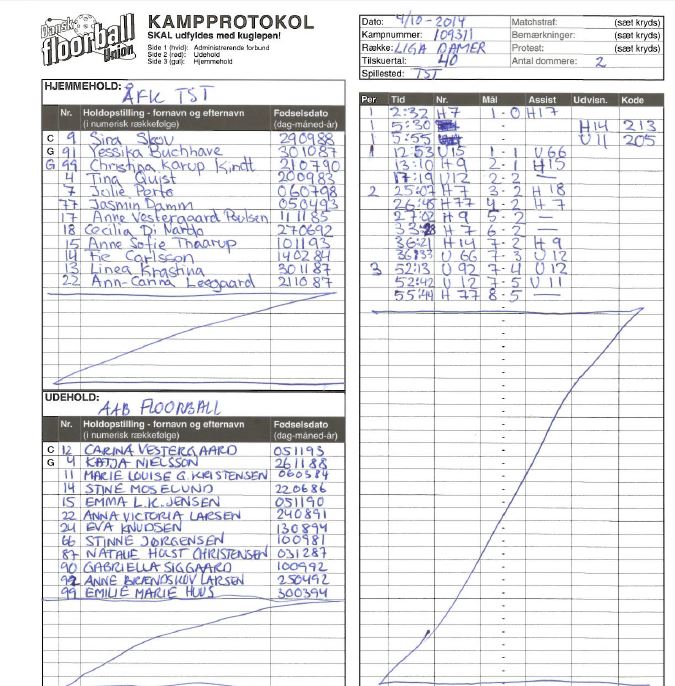 Dansk floorball Union
KAMPPROTOKOL
SKAL udfyldes med kuglepen!
Side 1 (hvid): Administrerende forbund
Side 2 (rød): Udehold
Side 3 (gul): Hjemmehold
Dato: 4/10-2014 Matchstraf: (sæt kryds)
Kampnummer: 109311 Bemærkninger: (sæt kryds)
Række: LIGA DAMER Protest: (sæt kryds)
Tilskuertal: 40 Antal dommere: 2
Spillested: TST
HJEMMEHOLD: ÅFK TST
Nr. Holdopstilling - fornavn og efternavn Fødselsdato
(i numerisk rækkefølge) (dag-måned-år)
C 9 Sira Skov 290988
G 91 Jessika Buchhave 301087
G 99 Christina Karup Kindt 210790
4 Tina Quist 200983
7 Jolie Perto 060798
77 Jasmin Damm 050493
17 Anne Vestergaard Poulsen 111185
18 Cecilia Di Nardo 270692
15 Anne Sofie Thaarup 101193
14 Fie Carlsson 140284
13 Linea Krastina 301187
22 Ann-Carina Leegaard 211087
UDEHOLD: AAB FLOORBALL
Nr. Holdopstilling - fornavn og efternavn Fødselsdato
(i numerisk rækkefølge) (dag-måned-år)
C 12 CARINA VESTERGAARD 051193
G 4 KATJA NIELSSON 261188
11 MARIE LOUISE G. KRISTENSEN 060584
14 STINE MOSELUND 220686
15 EMMA L.K. JENSEN 051190
22 ANNA VICTORIA LARSEN 240891
24 EVA KNUDSEN 130894
66 STINNE JØRGENSEN 100981
87 NATALIE HOLST CHRISTENSEN 031287
90 GABRIELLA SIGGAARD 100992
92 ANNE BRÆNDSKOV LARSEN 250492
99 EMILIE MARIE HUUS 300394
Per. Tid Nr. Mål Assist Udvisn. Kode
1 2:32 H7 1-0 H17
1 5:30 H14 213
1 5:55 U11 205
1 12:53 U15 1-1 U66
13:10 H9 2-1 H15
17:19 U12 2-2 —
2 25:07 H7 3-2 H18
26:45 H77 4-2 H7
27:02 H9 5-2 —
33:28 H7 6-2 —
36:21 H14 7-2 H9
36:37 U66 7-3 U12
3 52:13 U92 7-4 U12
52:42 U12 7-5 U11
55:44 H77 8-5 —